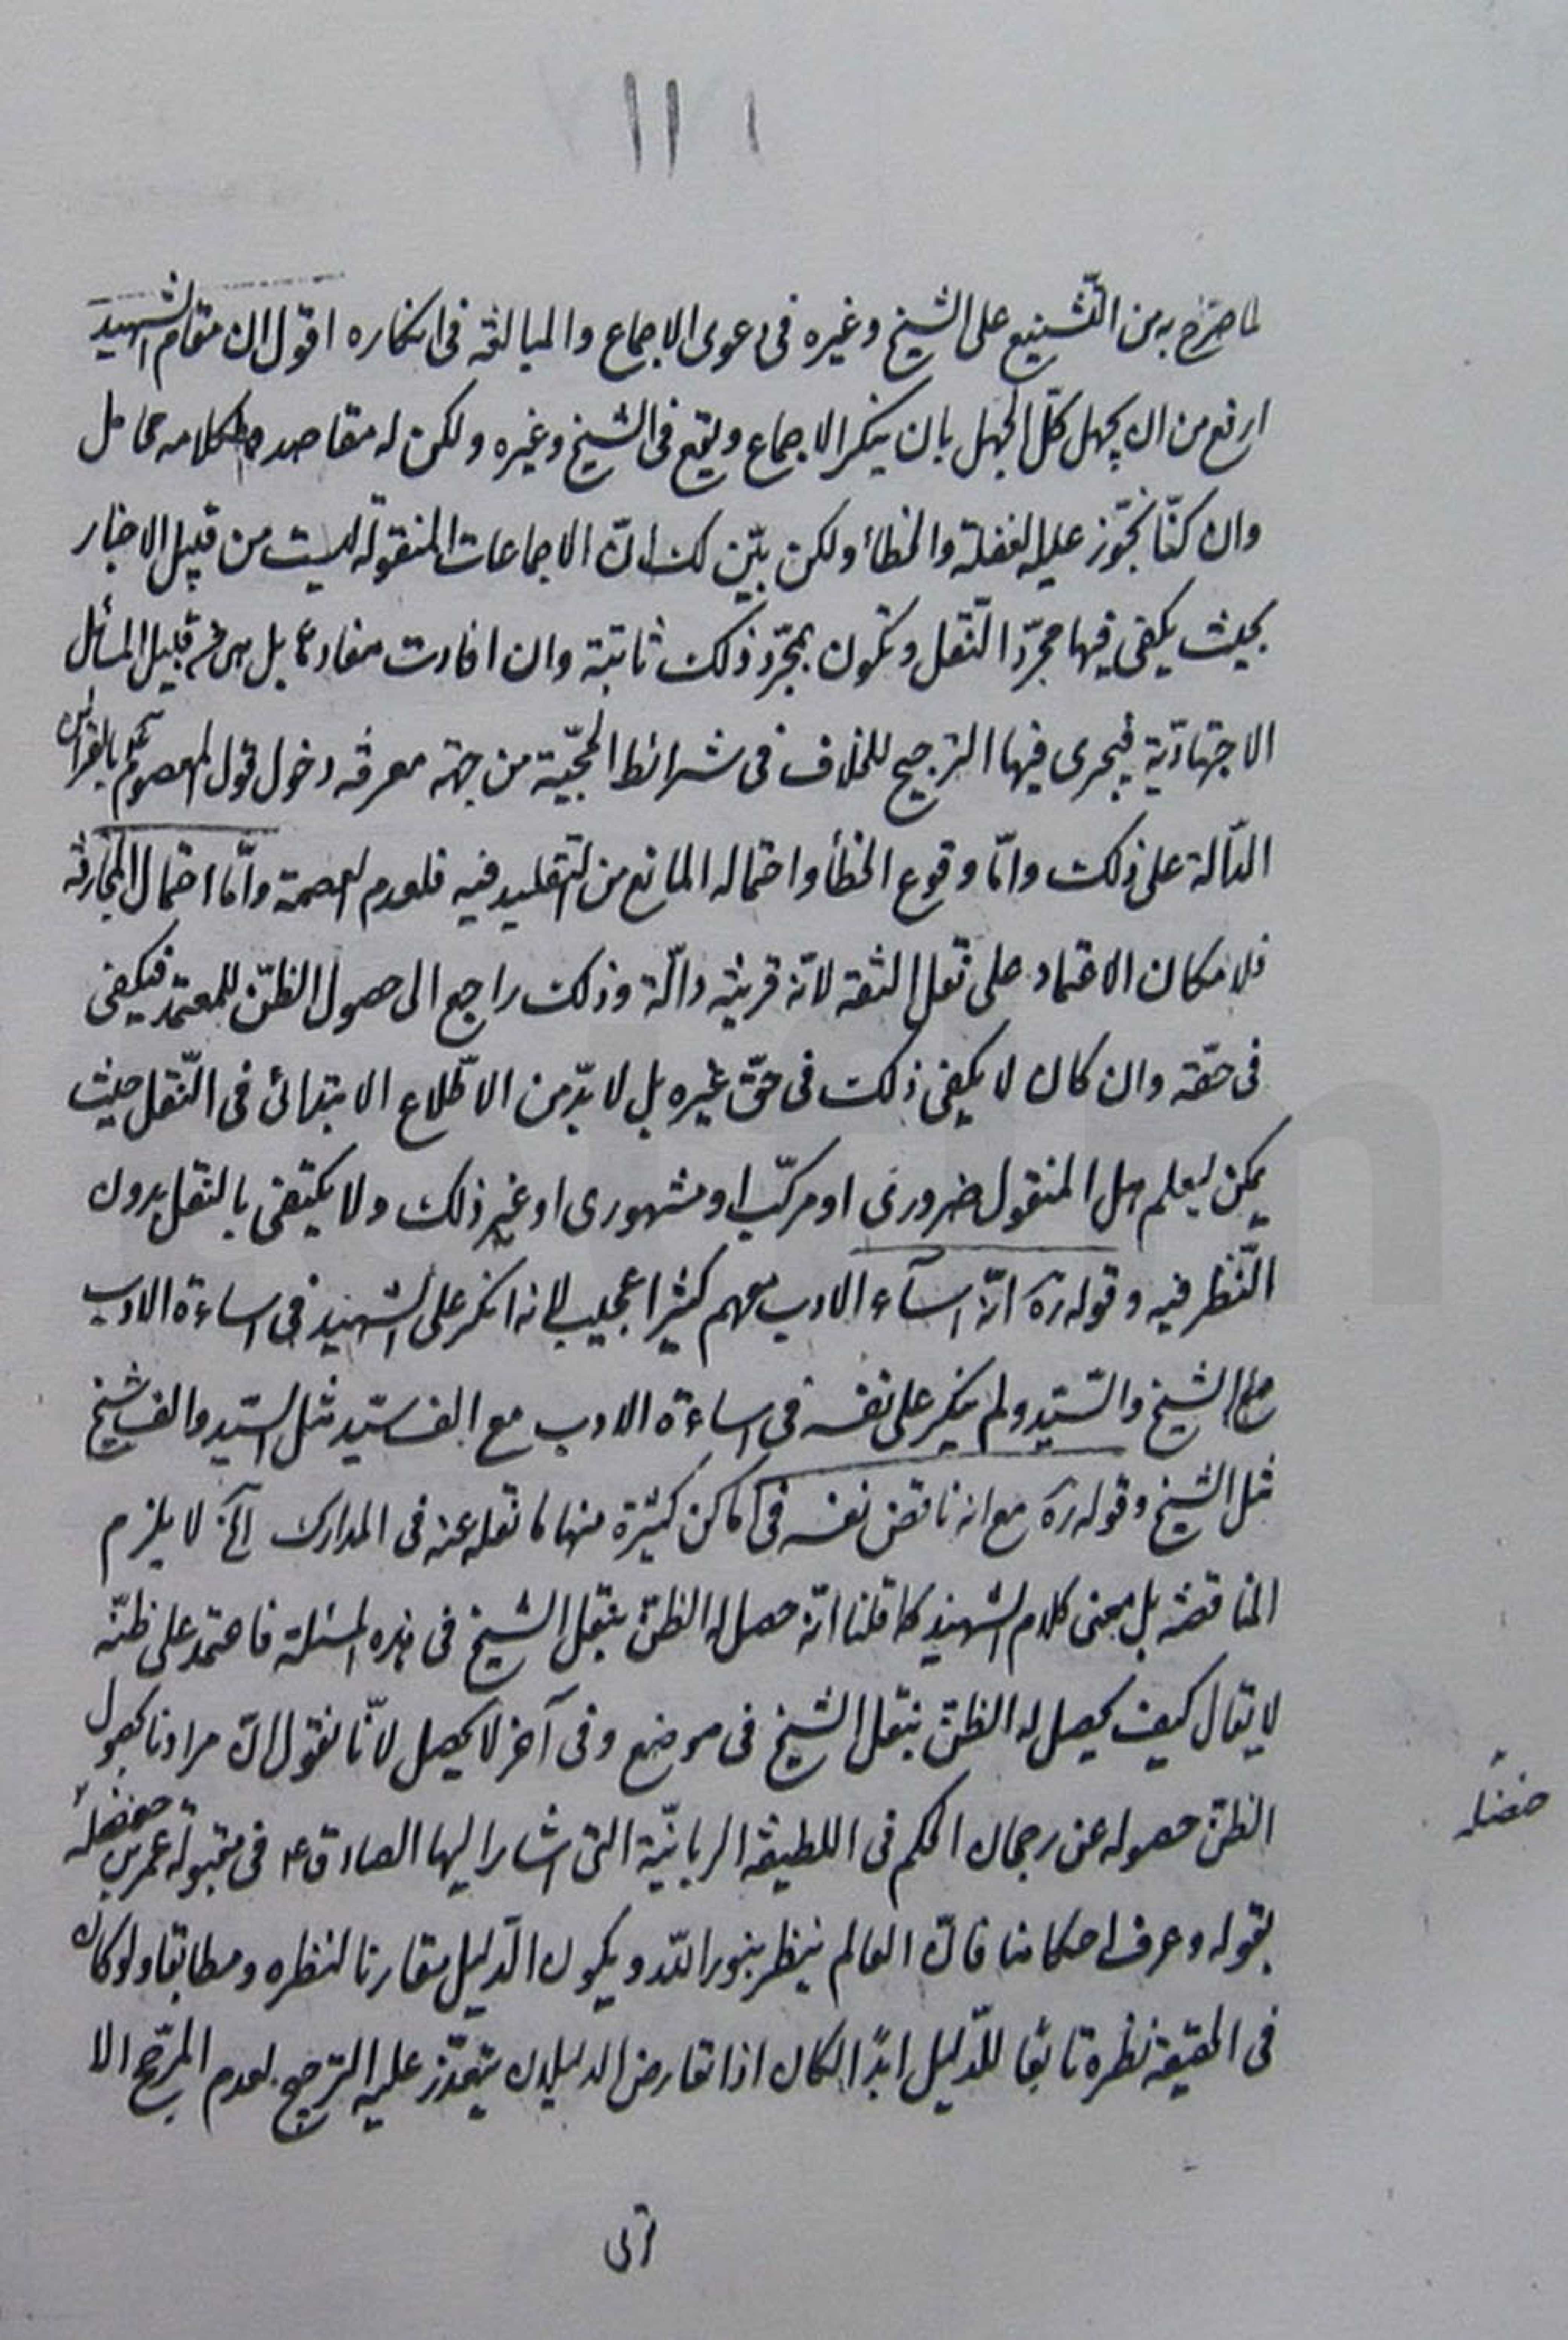 ١١١
لما صرّح به من التّشنيع على الشيخ وغيره فى دعوى الاجماع والمبالغة فى انكاره اقول ان مقام الشهيد
ارفع من ان يجهل كلّ الجهل بان ينكر الاجماع ويقع فى الشيخ وغيره ولكن له مقاصد ولكلامه محامل
وان كنّا نجوّز عليه الغفلة والخطأ ولكن بيّن لك انّ الاجماعات المنقولة ليست من قبيل الاخبار
بحيث يكفى فيها مجرّد النّقل وتكون بمجرّد ذلك ثابتة وان افادت مفادها بل هى من قبيل المسائل
الاجتهاديّة فيجرى فيها الترجيح للخلاف فى شرائط الحجّيّة من جهة معرفة دخول قول المعصوم ع بالقرائن
الدّالة على ذلك وامّا وقوع الخطأ واحتماله المانع من التقليد فيه فلعدم العصمة وامّا احتمال
فلامكان الاعتماد على نقل الثقة لانّه قرينة دالّة وذلك راجع الى حصول الظنّ للمعتمد فيكفى
فى حقّه وان كان لا يكفى ذلك فى حقّ غيره بل لا بدّ من الاطّلاع الابتدائى فى النّقل حيث
يمكن ليعلم هل المنقول ضرورى او مركّب او مشهورى او غير ذلك ولا يكتفى بالنقل بدون
النّظر فيه وقوله ره انّه اسآء الادب معهم كثيرا عجيب لانه انكر على الشهيد فى اساءة الادب
مع الشيخ والسّيّد ولم ينكر على نفسه فى اساءة الادب مع الف سيّد مثل السيّد والف شيخ
مثل الشيخ وقوله ره مع انه ناقض نفسه فى اماكن كثيرة منها ما نقله عنه فى المدارك الخ لا يلزم
المناقضة بل معنى كلام الشهيد كما قلنا انّه حصل له الظنّ بنقل الشيخ فى هذه المسئلة فاعتمد على ظنّه
لا يقال كيف يحصل له الظنّ بنقل الشيخ فى موضع وفى آخر لا يحصل لانّا نقول انّ مرادنا بحصول
الظنّ حصوله عن رجحان الحكم فى اللطيفة الربانيّة التى اشار اليها الصادق ع فى مقبولة عمر بن حنظلة
حنظلة
بقوله وعرف احكامنا فانّ العالم ينظر بنور اللّه ويكون الدّليل مقارنا لنظره ومطابقا ولو كان
فى الحقيقة نظره تابعًا للدّليل ابدًا لكان اذا تعارض الدليلان يتعذّر عليه الترجيح لعدم المرجّح الا
ترى